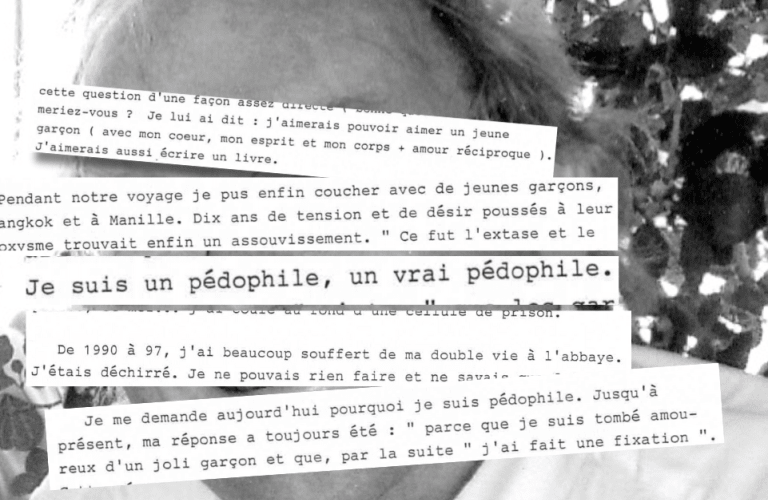 cette question d'une façon assez directe (
meriez-vous ? Je lui ai dit : j'aimerais pouvoir aimer un jeune
garçon ( avec mon coeur, mon esprit et mon corps + amour réciproque ).
J'aimerais aussi écrire un livre.
Pendant notre voyage je pus enfin coucher avec de jeunes garçons,
angkok et à Manille. Dix ans de tension et de désir poussés à leur
oxysme trouvait enfin un assouvissement. " Ce fut l'extase et le
Je suis un pédophile, un vrai pédophile.
j'ai coulé au fond d'une cellule de prison.
De 1990 à 97, j'ai beaucoup souffert de ma double vie à l'abbaye.
J'étais déchirré. Je ne pouvais rien faire et ne savais
Je me demande aujourd'hui pourquoi je suis pédophile. Jusqu'à
présent, ma réponse a toujours été : " parce que je suis tombé amou-
reux d'un joli garçon et que, par la suite " j'ai fait une fixation ".